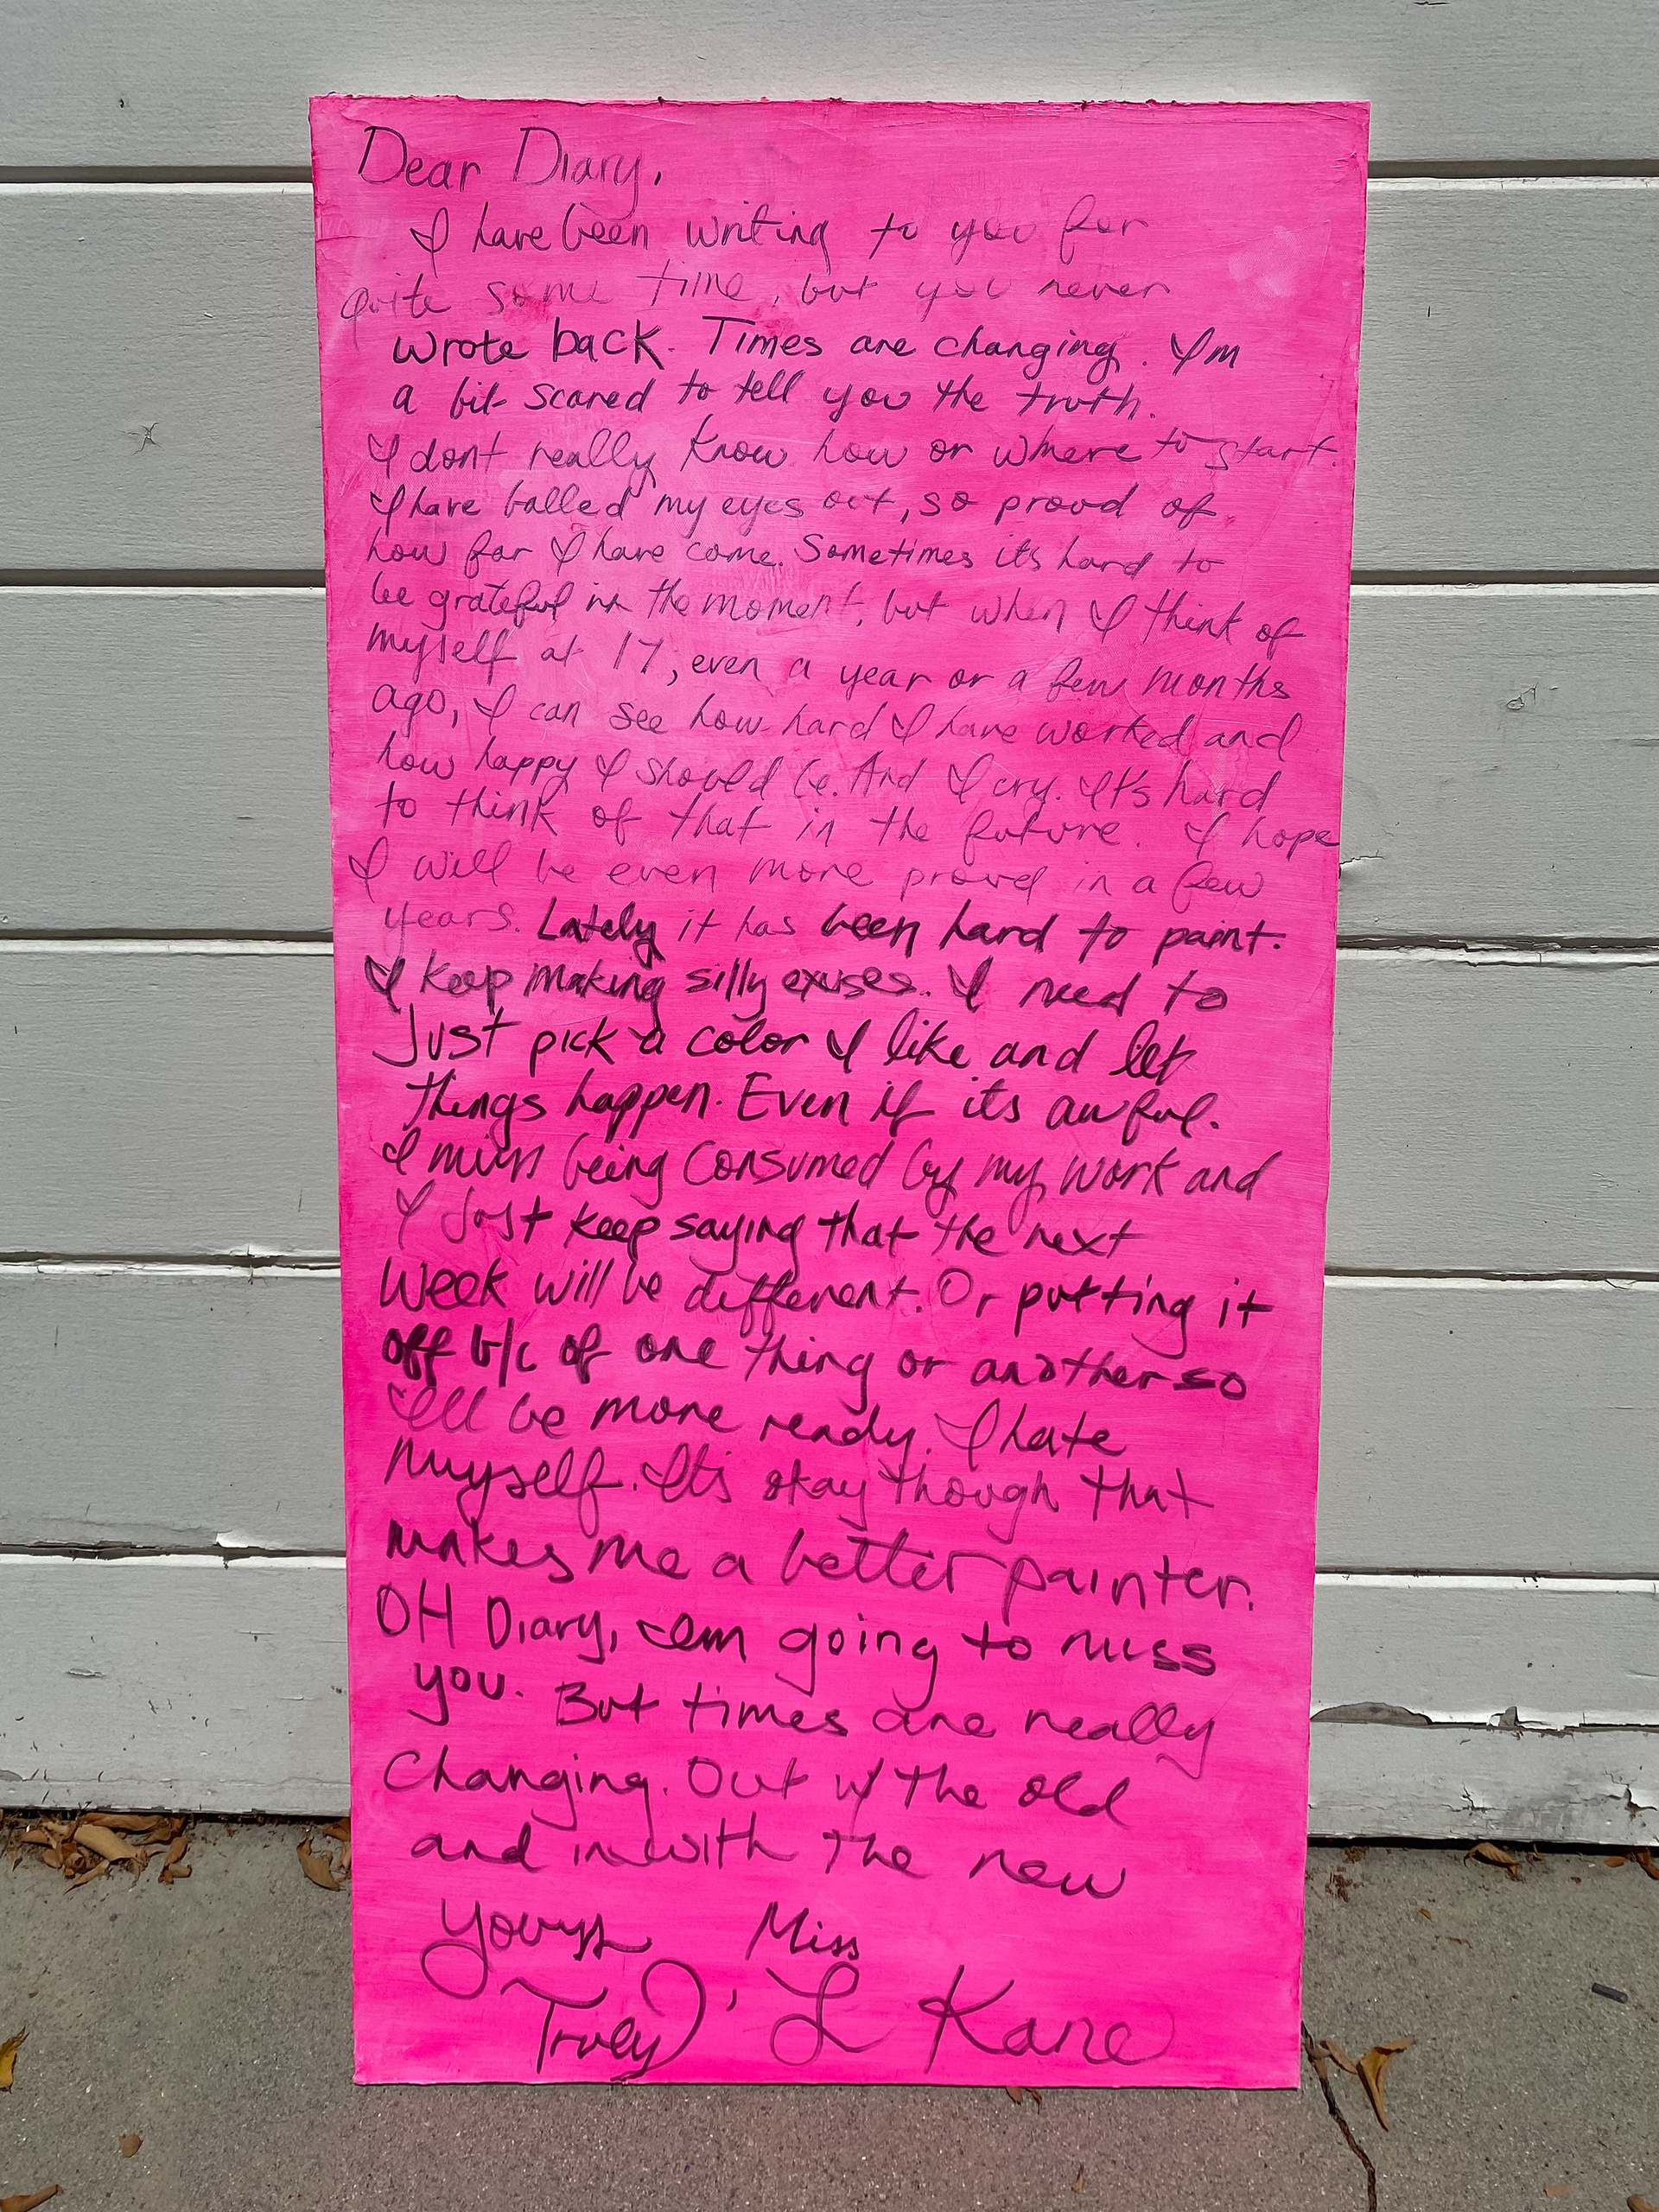 Dear Diary,
I have been writing to you for
quite some time, but you never
wrote back. Times are changing. I'm
a bit scared to tell you the truth.
I dont really know how or where to start.
I have balled my eyes out, so proud of
how far I have come. Sometimes its hard to
be grateful in the moment, but when I think of
myself at 17, even a year or a few months
ago, I can see how hard I have worked and
how happy I should be. And I cry. It's hard
to think of that in the future. I hope
I will be even more proud in a few
years. Lately it has been hard to paint.
I keep making silly exuses. I need to
Just pick a color I like and let
things happen. Even if its awful.
I miss being consumed by my work and
I Just keep saying that the next
week will be different. Or putting it
off b/c of one thing or another so
I'll be more ready. I hate
myself. It's okay though that
makes me a better painter.
OH Diary, I am going to miss
you. But times are really
changing. Out w/ the old
and in with the new
Yours Miss
Truly, L Kane